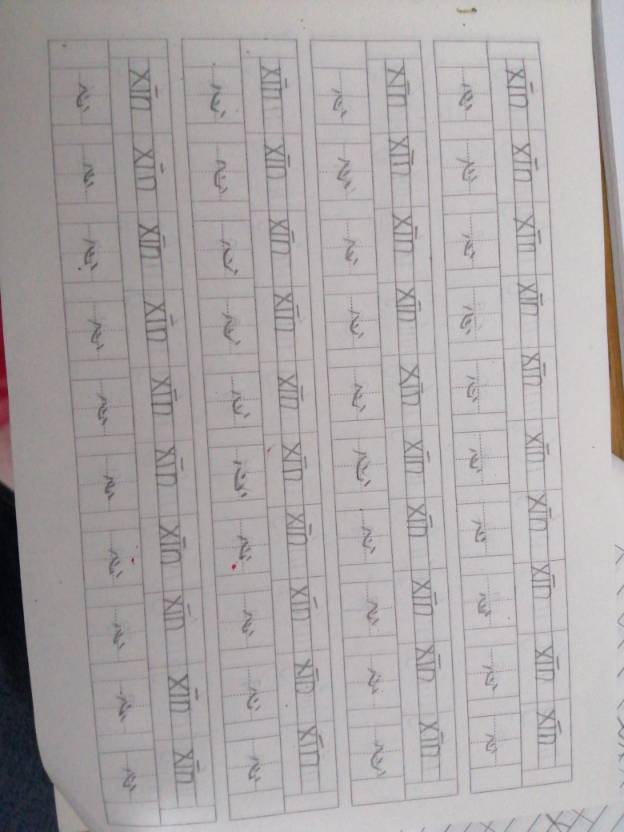 xīn xīn xīn xīn xīn xīn xīn xīn xīn xīn
心 心 心 心 心 心 心 心 心 心
xīn xīn xīn xīn xīn xīn xīn xīn xīn xīn
心 心 心 心 心 心 心 心 心 心
xīn xīn xīn xīn xīn xīn xīn xīn xīn xīn
心 心 心 心 心 心 心 心 心 心
xīn xīn xīn xīn xīn xīn xīn xīn xīn xīn
心 心 心 心 心 心 心 心 心 心